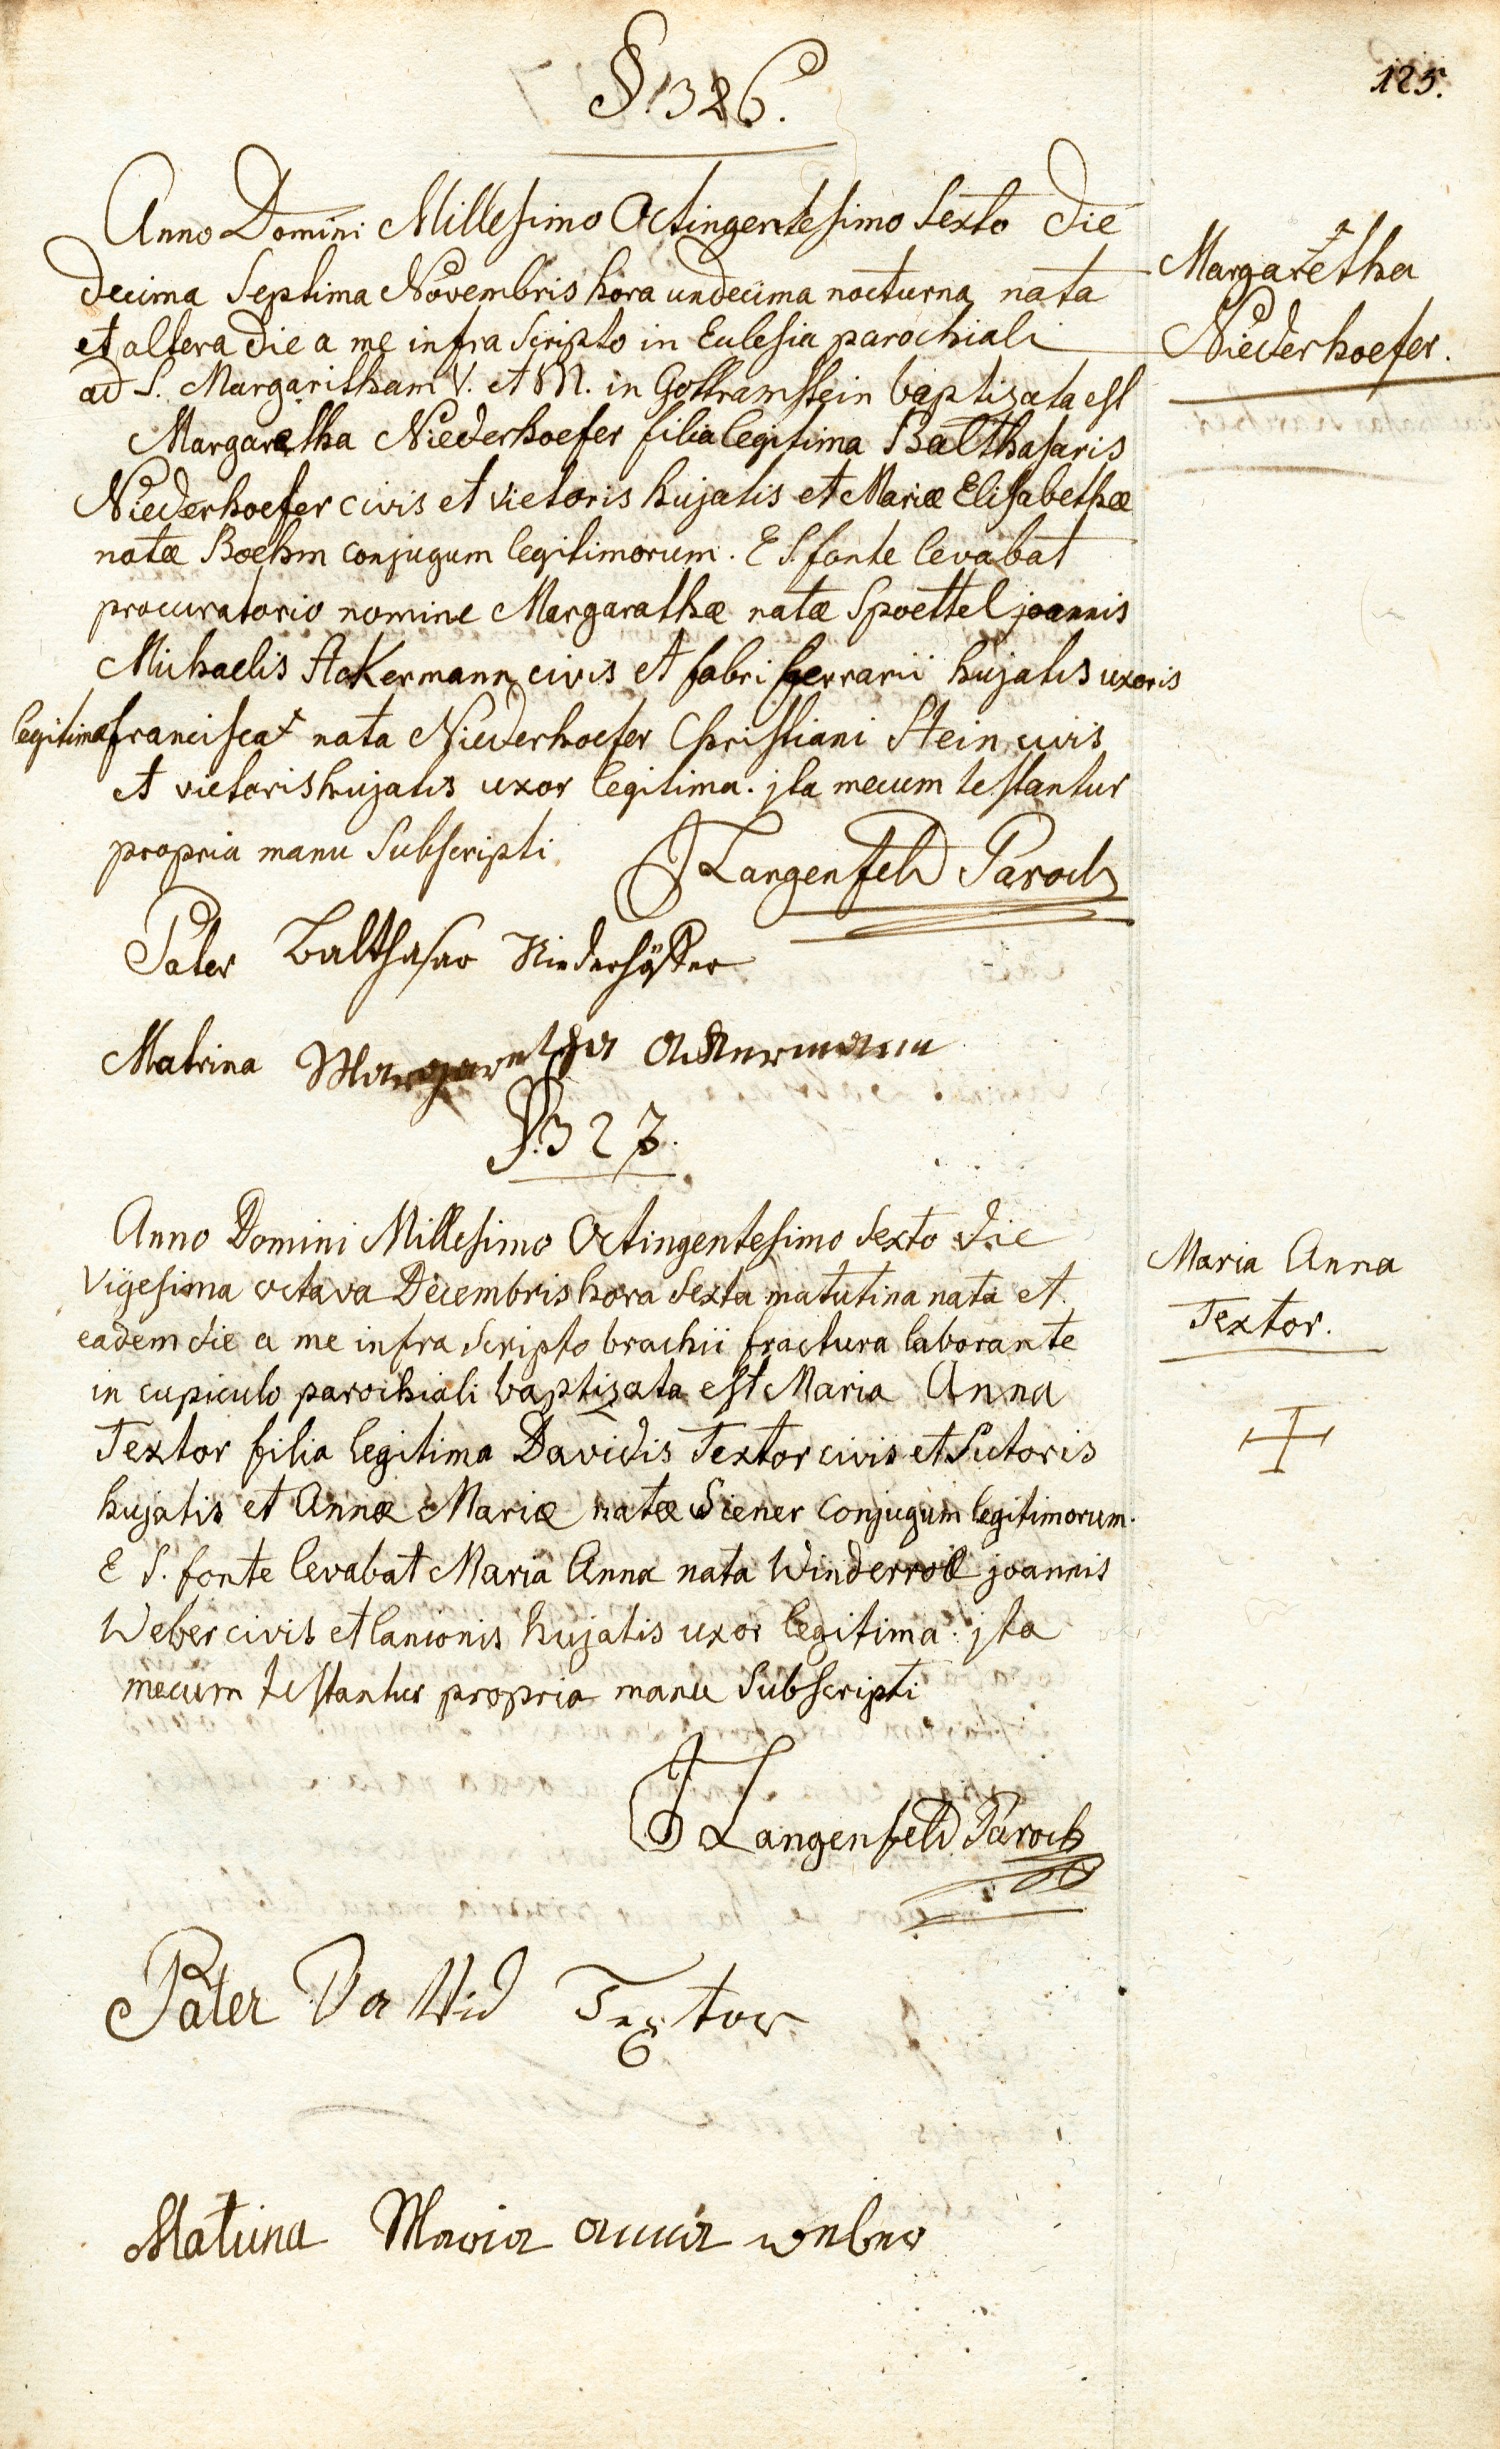 125.
§. 326.
Anno Domini Millesimo Octingentesimo Sexto die
decima Septima Novembris hora undecima nocturna nata
et altera die a me infra Scripto in Eclesia parochiali
ad S. Margaritham V. et M. in Gottramstein baptizata est
Margaretha Niederhoefer filia legitima Balthasaris
Niederhoefer civis et vietoris hujatis et Mariæ Elisabethæ
natæ Boehm conjugum legitimorum. E S. fonte levabat
procuratorio nomine Margarathæ natæ Spoettel joannis
Michaelis Ackermann civis et fabri ferrarii hujatis uxoris
legitimæ francisca nata Niederhoefer Christiani Stein civis
et vietoris hujatis uxor legitima. jta mecum testantur
propria manu Subscripti
J Langenfeld Paroch
Pater Balthasar Niederhöffer
Matrina Margaretha Ackermann
Margaretha
Niederhoefer.
§. 327.
Anno Domini Millesimo Octingentesimo Sexto die
Vigesima octava Decembris hora Sexta matutina nata et
eadem die a me infra Scripto brachii fractura laborante
in cupiculo parochiali baptizata est Maria Anna
Textor filia legitima Davidis Textor civis et Sutoris
hujatis et Annæ Mariæ natæ Siener conjugum legitimorum.
E S. fonte levabat Maria Anna nata Winderroll joannis
Weber civis et lanionis hujatis uxor legitima. jta
mecum testantur propria manu Subscripti
J Langenfeld Paroch
Pater David Textor
Matrina Maria anna weber
Maria Anna
Textor.